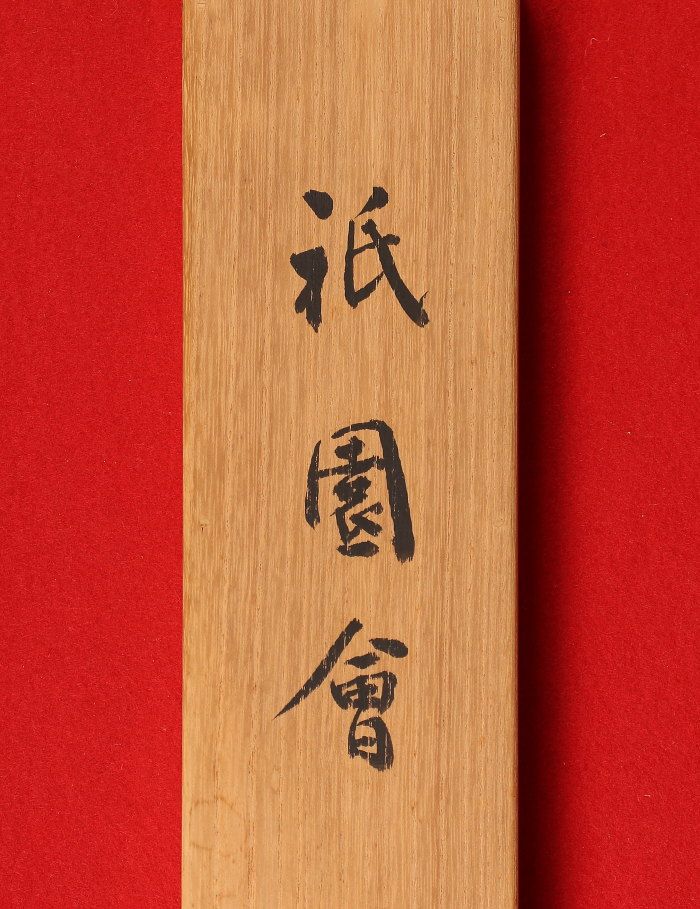 祇園會